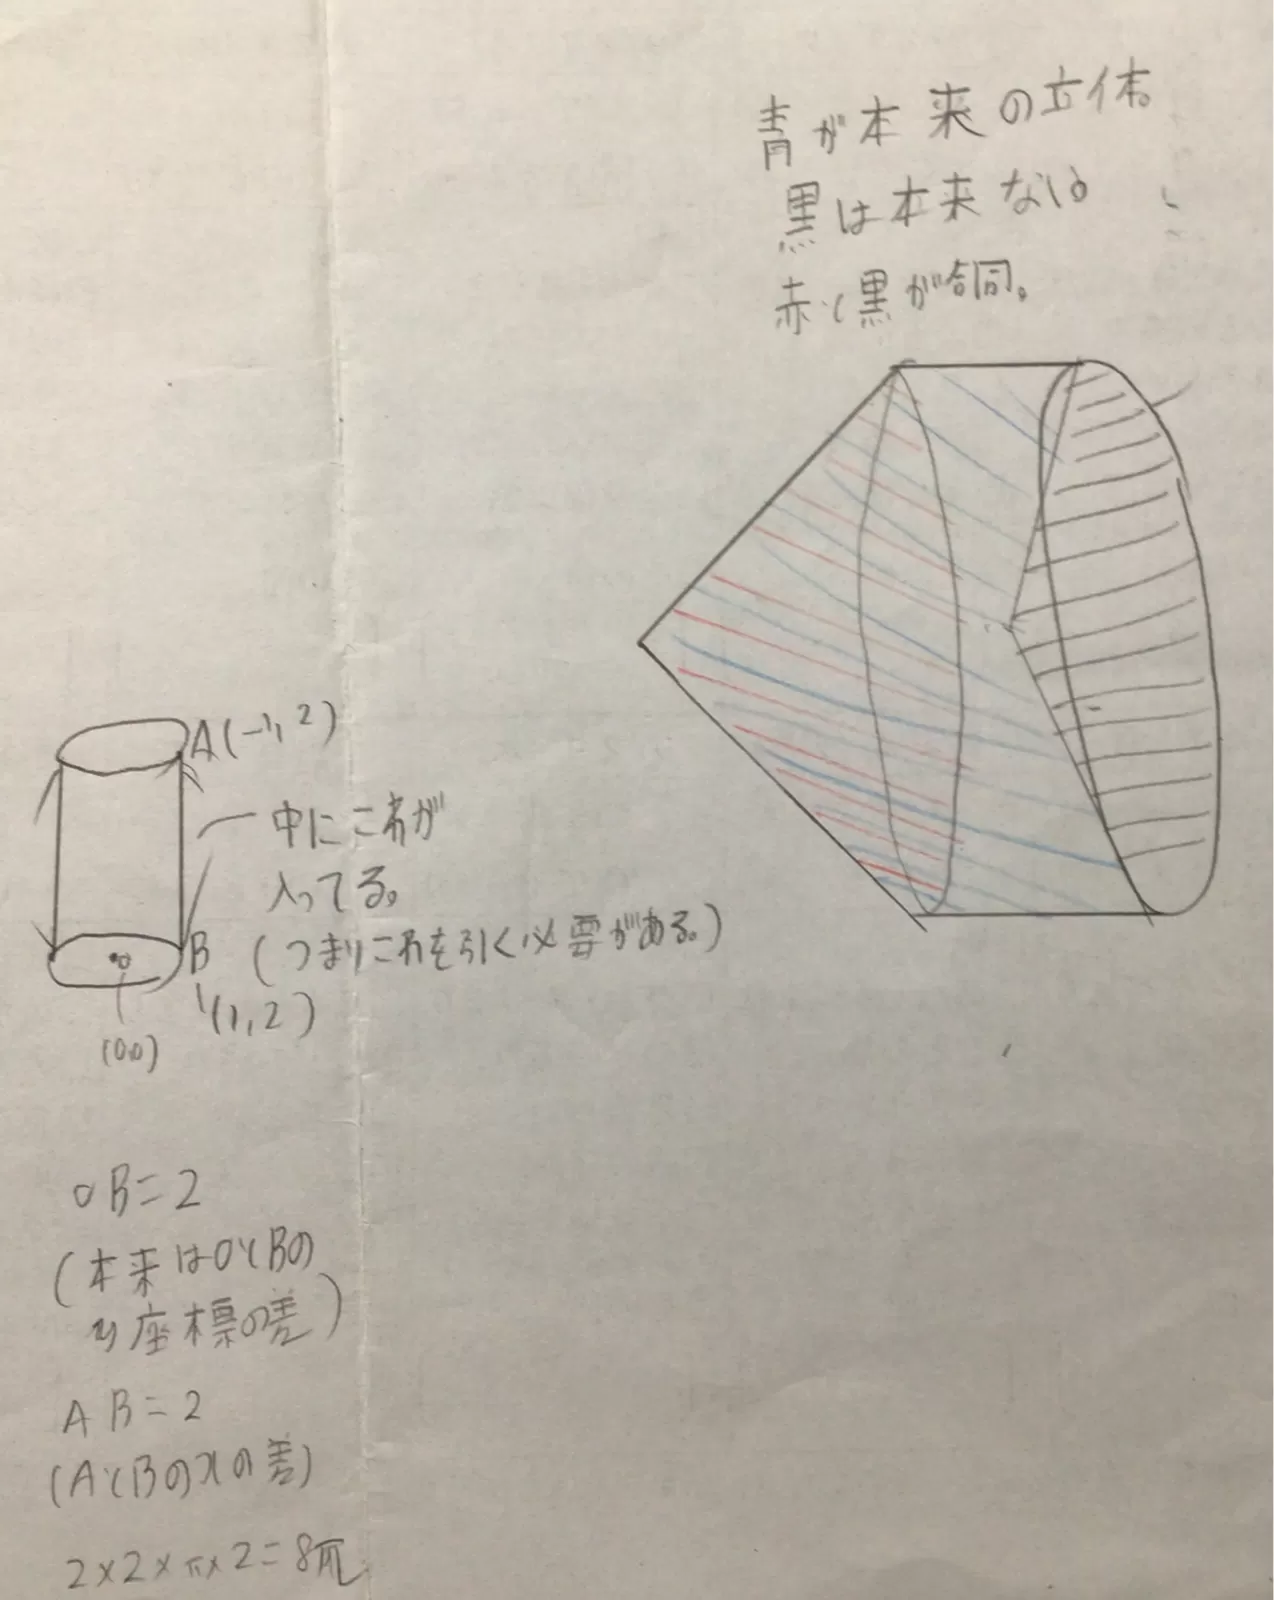 青が本来の立体。
黒は本来ない
赤と黒が合同。
A(-1, 2)
中にこれが
入ってる。
B (つまりこれを引く必要がある。)
(1, 2)
(0,0)
OB=2
(本来はOとBの
y座標の差)
AB=2
(AとBのxの差)
2×2×π×2=8π